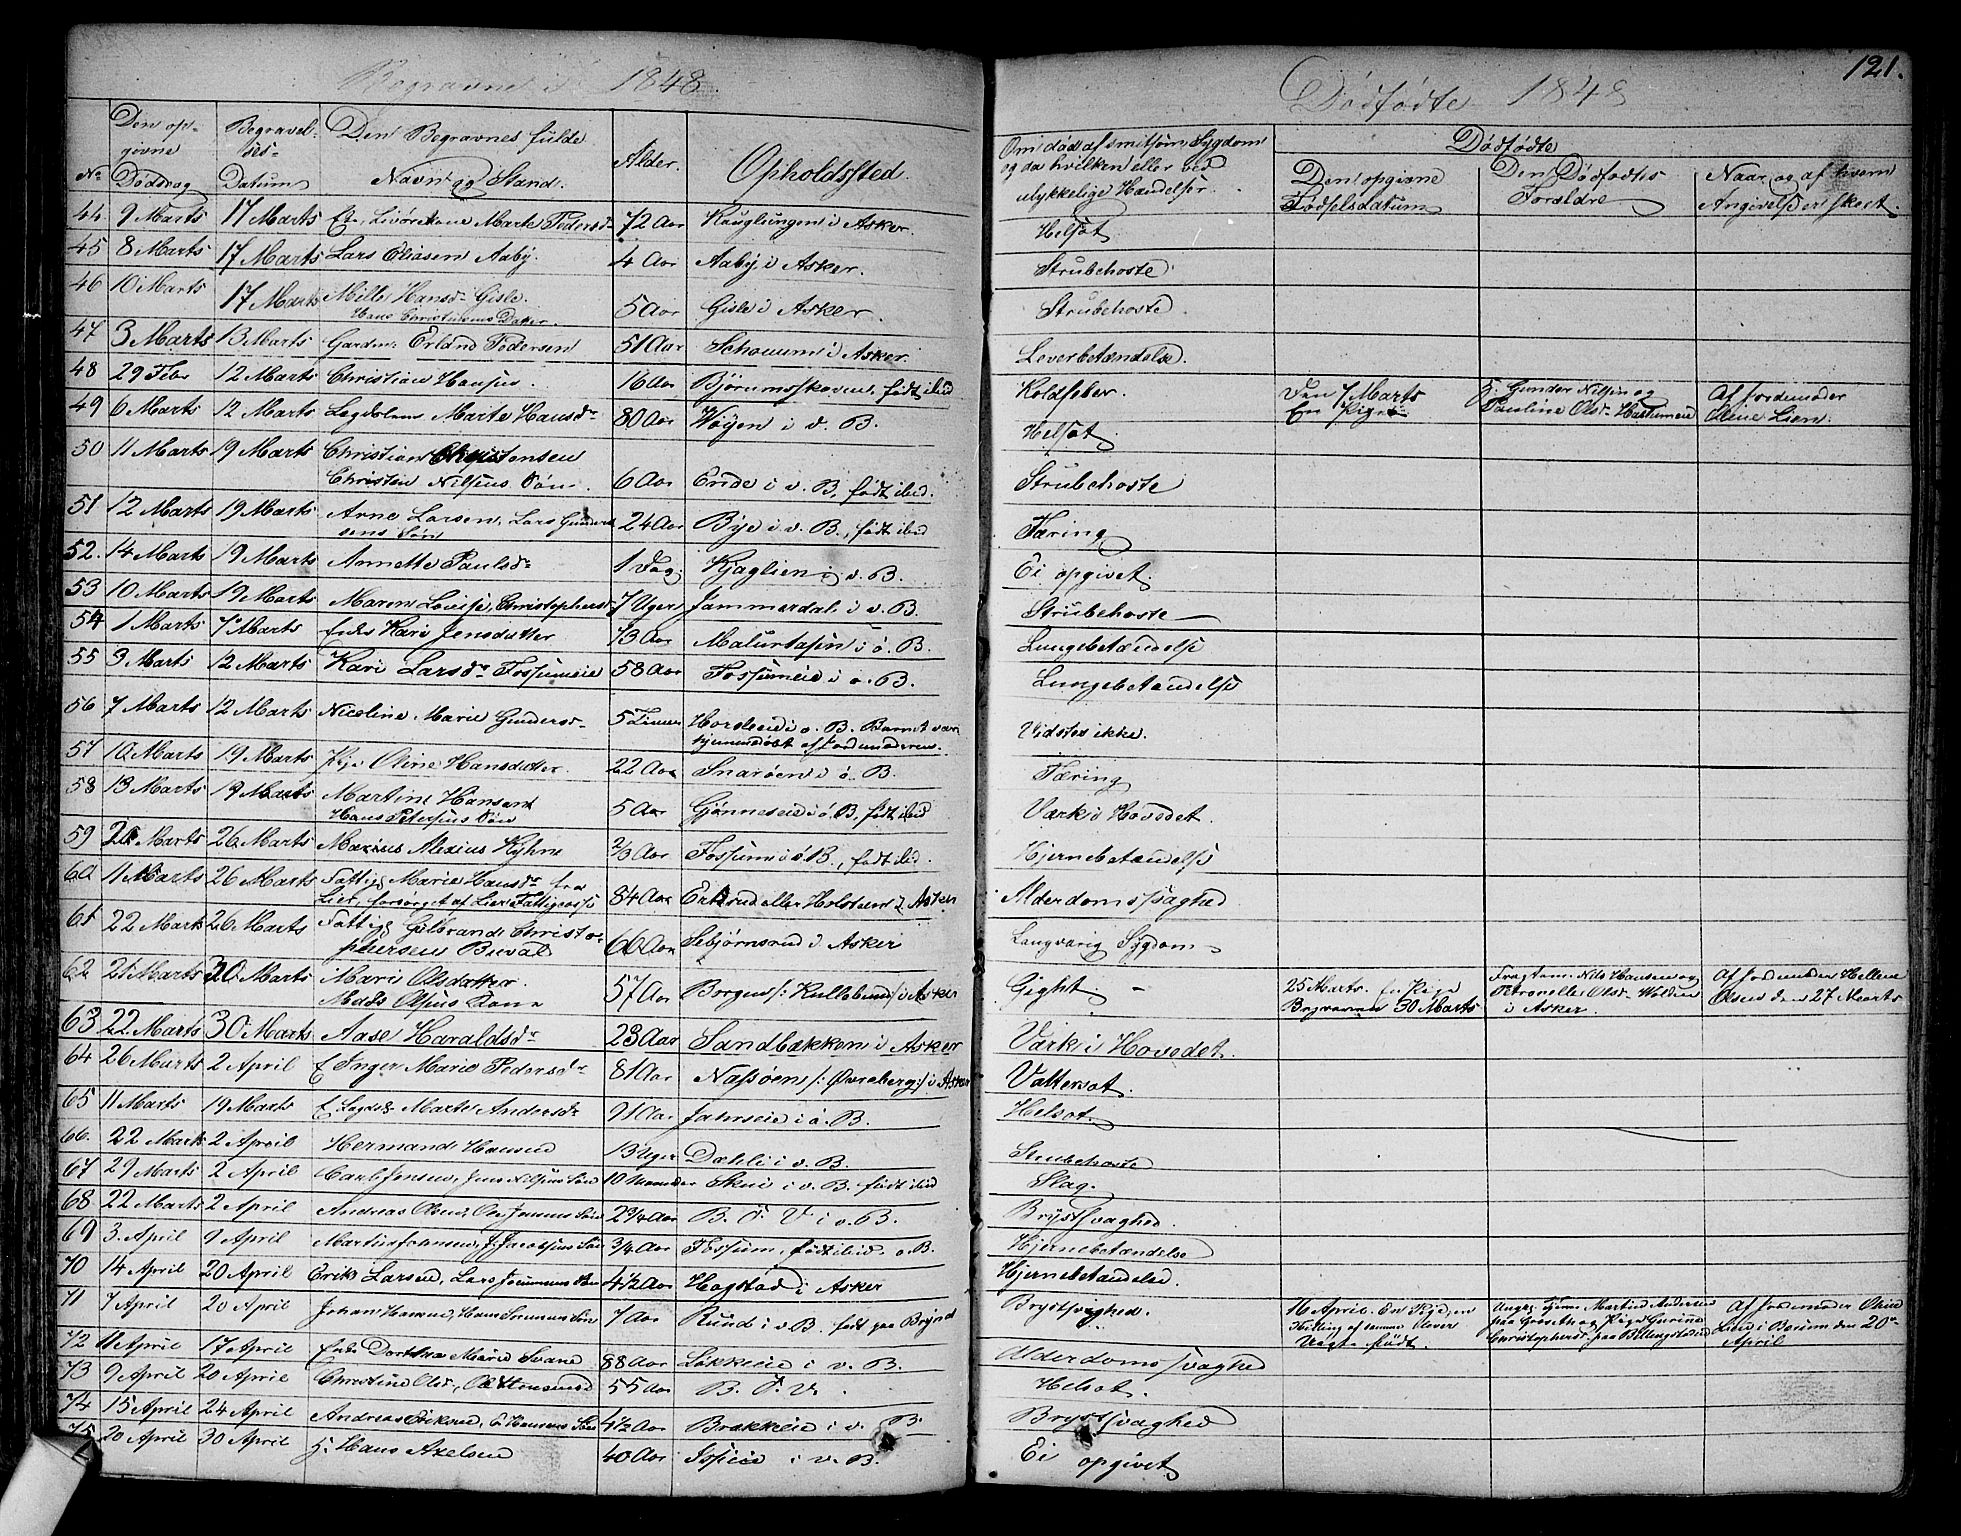 Begravne i 1848.
Dødfødte 1848
121.
No
Den op-
givne
Dødsdag
Begravel-
ses-
Datum
Den Begravnes fulde
Navn og Stand.
Alder.
Opholdssted.
Om død af smitsom Sygdom
og da hvilken eller ved
ulykkelige Hændelser.
Dødfødte
Den opgivne
Fødselsdatum
Den Dødfødtes
Forældre
Naar og af hvem
Angivelse er skeet.
44. 9 Marts 17 Marts Marte Pedersd 72 Aar i Asker. Helsot
45 8 Marts 17 Marts Lars Eliasen Aaby. 4 Aar Aaby i Asker. Strubehoste
46 10 Marts 17 Marts Mille Hansd Gisle.
Hans Christensens Datter. 5 Aar Gisle i Asker. Strubehoste
47 3 Marts 13 Marts Gardm. Erland Pedersen 51 Aar i Asker. Leverbetændelse.
48 29 Febr 12 Marts Christian Hansen. 16 Aar Bjørumsskoven, født ibid Koldfeber. Den 7 Marts
En Pige Gunder Nilsen og
Pauline Olsd Af Jordemoder
Olene Lien.
49 6 Marts 12 Marts Marte Hansdr 80 Aar Wøyen i v. B. Helsot
50 11 Marts 19 Marts Christian Christensen
Christen Nilsens Søn. 6 Aar i v. B, født ibid. Strubehoste
51 12 Marts 19 Marts Arne Larsen, Lars Gunder
sens Søn 24 Aar Bye i v. B., født ibid Tæring
52. 14 Marts 19 Marts Annette Paulsdr 1 Dag Kjaglien i v. B. Ei opgivet.
53 10 Marts 19 Marts Maren Lovise, Christophersd 7 Uger Jammerdal i v. B. Strubehoste
54 1 Marts 7 Marts Enke Kari Jensdatter 73 Aar i ø. B. Lungebetændelse
55 3 Marts 12 Marts Kari Larsdr Fossumeie 58 Aar Fossumeie i ø. B. Lungebetændelse
56 7 Marts 12 Marts Nicoline Marie Gundersdr 5 Timer i ø. B. Barnet var
hjemmedøbt af Jordemoderen. Vidstes ikke.
57 10 Marts 19 Marts Pige Oline Hansdatter. 22 Aar Snarøen i ø. B. Tæring
58 13 Marts 19 Marts Martin Hansen
Hans Petersens Søn 5 Aar Gjønneseie i ø. B, født ibid Værk i Hovedet.
59 26 Marts Marius Alexius Kyhne 2/3 Aar Fossum i ø. B., født ibid. Hjernebetændelse
60 11 Marts 26 Marts Fattig Marie Hansdr fra
Lier, forsørget af Lier Fattigcasse 84 Aar eller Holstad i Asker Alderdomssvaghed
61 22 Marts 26 Marts Fattig Gulbrand Christo-
phersen 66 Aar Sebjørnsrud i Asker Langvarig Sygdom
62 21 Marts 30 Marts Mari Olsdatter
Mads Olsens Kone 57 Aar Borgen i Asker Gight. 25 Marts. En Pige
Begraven 30 Marts Nils Hansen og
Petronelle Olsdr
i Asker. Af Jordemoder Hellene
Olsen den 27 Marts
63 22 Marts 30 Marts Aase Haraldsdr 23 Aar Sandbækken i Asker Værk i Hovedet.
64 26 Marts 2 April E. Inger Marie Pedersdr 81 Aar Næsøen /: Øvreberg :/ i Asker Vattersot.
65 11 Marts 19 Marts E. Marte Andersdr 91 Aar Jahrseie i ø. B. Helsot
66. 22 Marts 2 April Hermand Hansen 13 Uger Dæhli i v. B. Strubehoste
67 29 Marts 2 April Carl Jensen, Jens Nilsens Søn 10 Maaneder Skui i v. B. født ibid Slag.
68 22 Marts 2 April Andreas Olsen, Ole Jensens Søn 2 3/4 Aar B. J. V. i v. B. Brystsvaghed
69 3. April 9 April Martin Johansen, J. Jacobsens Søn 3/4 Aar Fossum, født ibid. ø. B. Hjernebetændelse
70 14 April 20 April Erik Larsen, Lars Søn 4 1/2 Aar Hogstad i Asker Hjernebetændelse.
71 7 April 20 April Johan Hansen, Hans Søn 7 Aar Rund i v. B. født paa Brynd Brystsvaghed. 16 April. En Pige, en
Tvilling af samme Moder
født. Martin Andersen
og Pige Gurine
Christophersd. paa Billingstadeie Af Jordemoder Oline
Lien i Bærum den 20de
April
72 11 April 17 April Enke Dorthea Marie Svane 88 Aar Løkkeeie i v. B. Alderdomssvaghed
73 9 April 20 April Christine Olsd, 55 Aar B. J. V. Helsot.
74 15 April 24 April Andreas Eriksen, E. Hansens Søn 4 1/2 Aar Brækkeeie i v. B Brystsvaghed
75 20 April 30 April Hans Axelsen 40 Aar i v. B. Ei opgivet